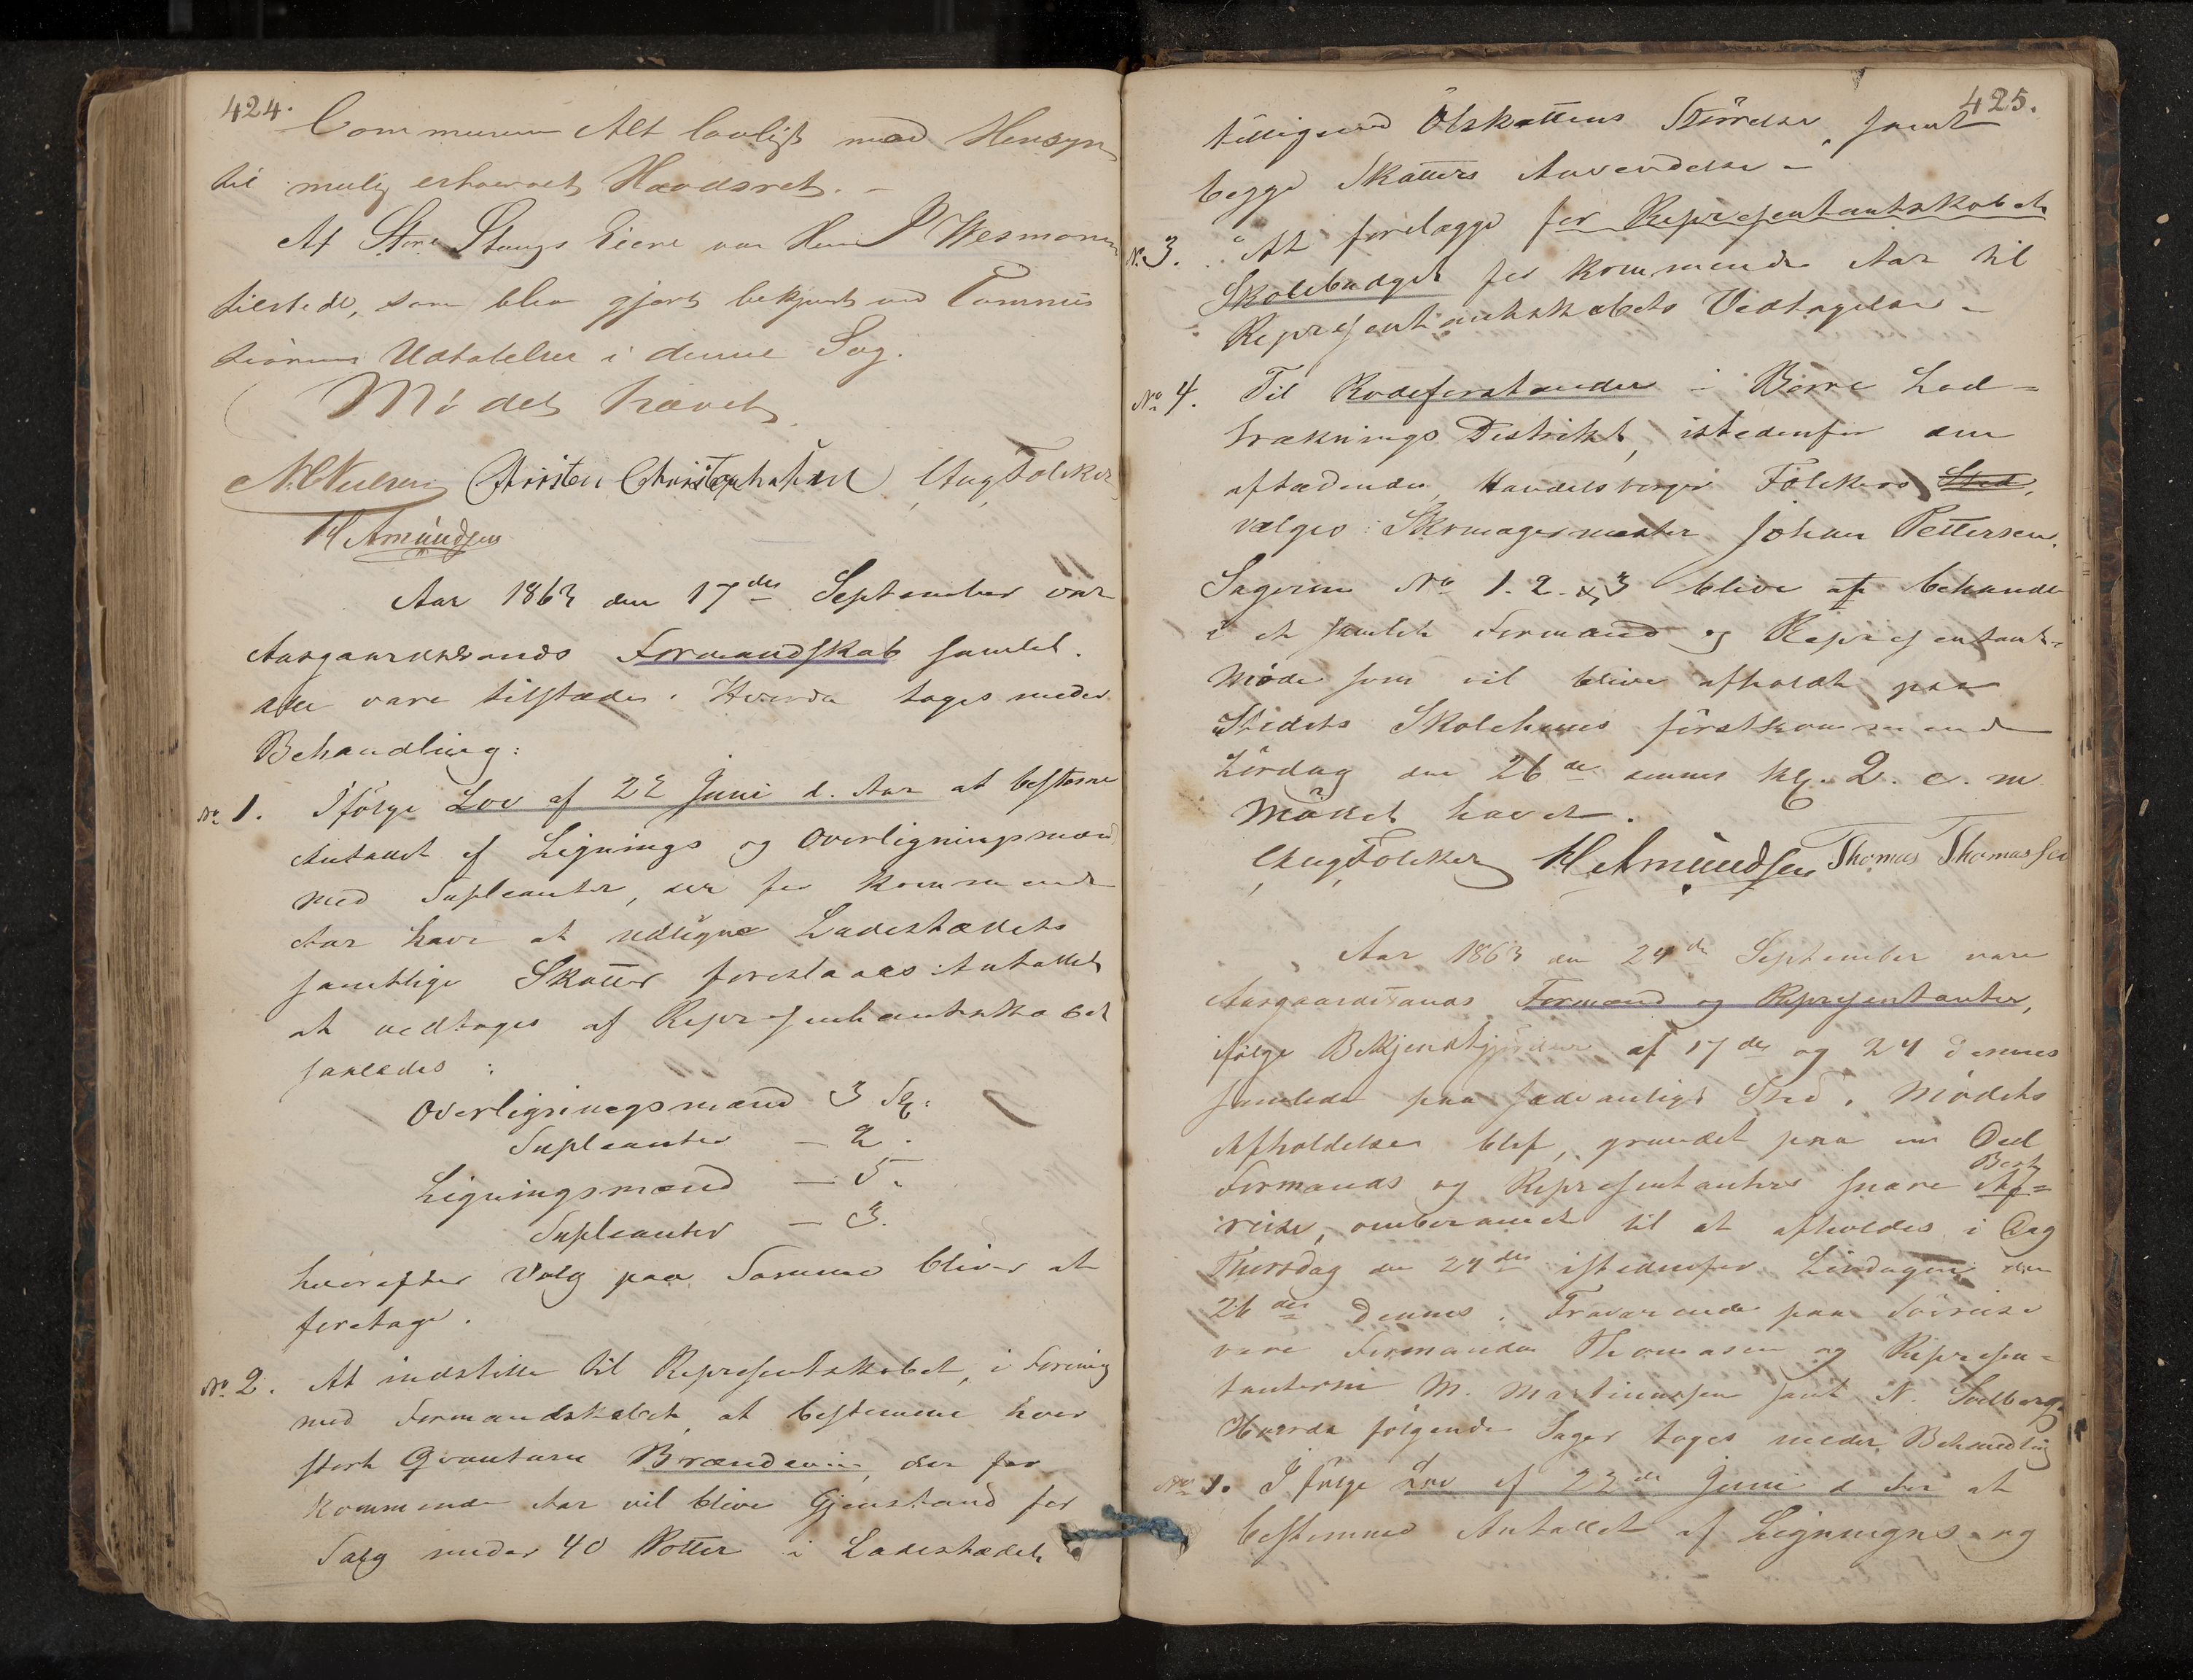 424.
Communen Alt lovligt med Hensyn
til mulig erhvervet Hævdsret. –
Af Store Stangs Eiere var Herr P Wesmann
tilstede, som blev gjort bekjent med Commis
sionens Udtalelser i denne Sag.
Mødet hævet
N. Nielsen Christen Christophersen Aug Følcker
H Amundsen
Aar 1863 den 17de September var
Aasgaardstrands Formandskab samlet.
alle vare tilstæde. Hvorda toges under
Behandling:
No 1. Ifølge Lov af 22 Juni d. Aar at besteme
Antallet af Lignings og Overligningsmænd
med Supleanter, der for kommende
Aar have at udligne Ladestædets
samtlige Skatter foreslaaes Antallet
at vedtages af Repræsentantskabet
saaledes:
Overligningsmænd 3 St:
Supleanter – 2.
Ligningsmænd – 5.
Supleanter – 3.
hvorefter Valg paa Samme bliver at
foretage.
No 2. At indstille til Represent­skabet, i Forening
med Formandskabet, at bestemme hvor
stort Qvantum Brændeviin, der for
kommende Aar vil blive Gjenstand for
Salg under 40 Potter i Ladestædet
425.
tilligemed Ølskattens Størrelse, samt
begge Skatters Anvendelse –
No 3. At forelægge for Represententskabet
Skolebudget for kommende Aar til
Represententskabets Vedtagelse –
No 4. Til Rodeforstander i Borre Lod=
træknings Distrikt, istedenfor den
aftrædende, Handelsborger Følckers Sted,
vælges: Skomagermester Johan Pettersen.
Sagerne No 1. 2. & 3 blive at behandle
i et samlet Formænd og Representant=
Møde som vil blive afholdt paa
Stedets Skolehuus førstkommende
Lørdag den 26de dennes Kl. 2. e. m.
Mødet hævet.
Aug Følcker H Amundsen Thomas Thomassen
Aar 1863 den 24de September vare
Aasgaardstrands Formænd og Representanter,
ifølge Bekjendtgjørelse af 17de og 24 dennes
samlede paa sædvanligt Sted. Mødets
Afholdelse blef, grundet paa en Deel
Formænds og Representanters snare Bort
Af=
reise, omberamet til at afholdes i Dag
Thorsdag den 24de istedenfor Lørdagen den
26de Dennes. Fraværende paa Søreise
vare Formanden Thomasen og Represen=
tanterne M. Martinussen samt N. Solberg.
Hvorda følgende Sager toges under Behandling
No 1. I følge Lov af 22de Juni d Aar at
bestemme Antallet af Lignings og